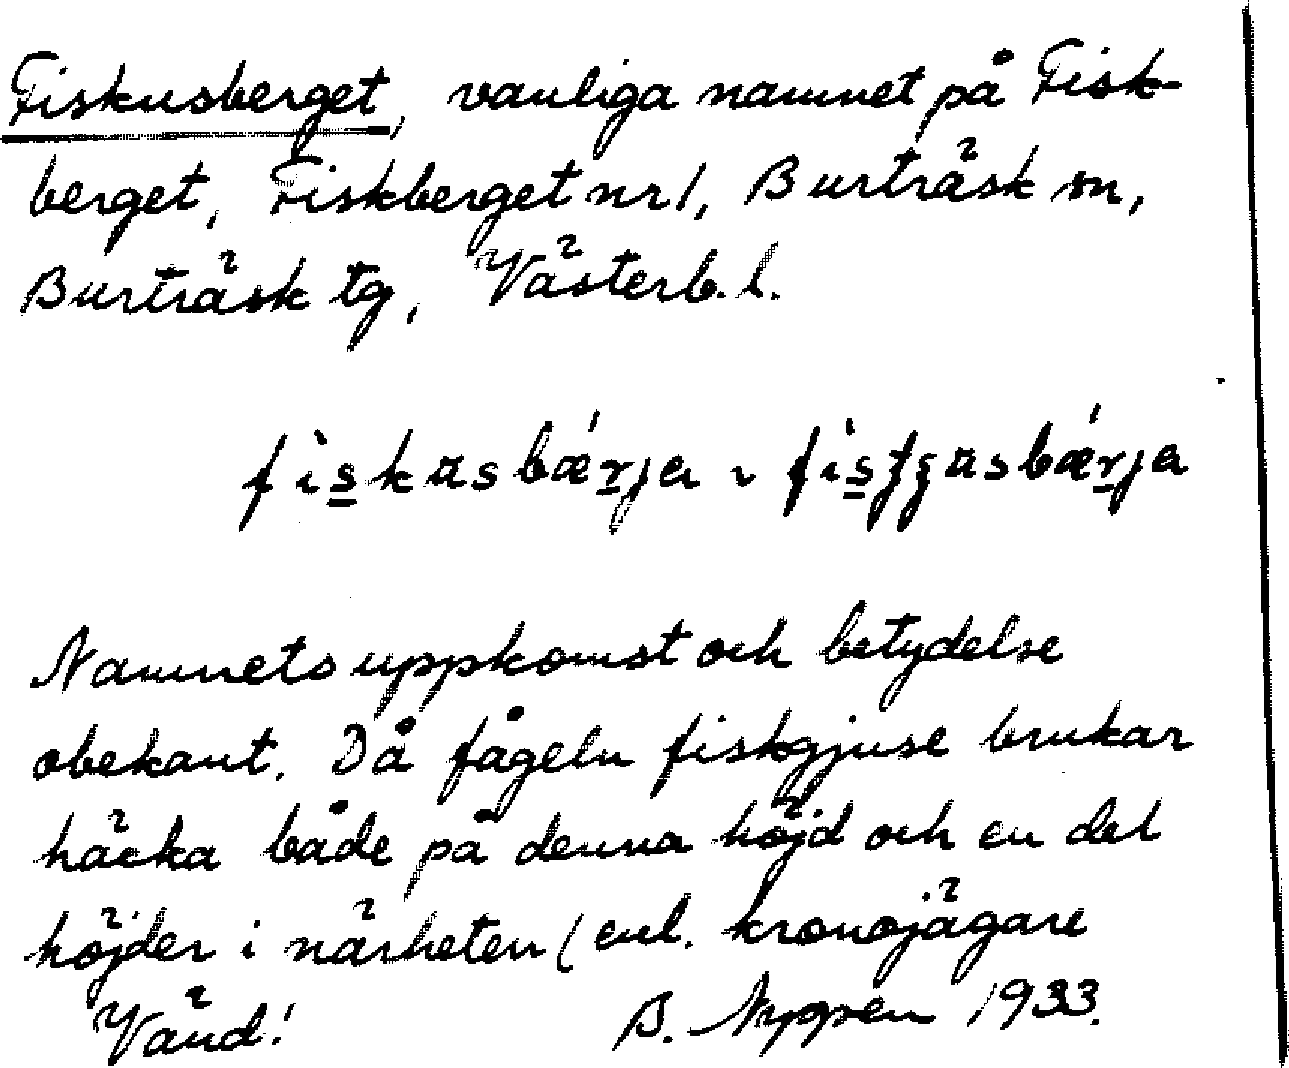 Fiskusberget, vanliga namnet på Fisk-
berget, Fiskberget nr 1, Burträsk sn,
Burträsk tg, Västerb. l.
Namnets uppkomst och betydelse
obekant. Då fågeln fiskgjuse brukar
häcka både på denna höjd och en del
höjder i närheten (enl. kronojägare
Vänd! B. Nygren 1933.